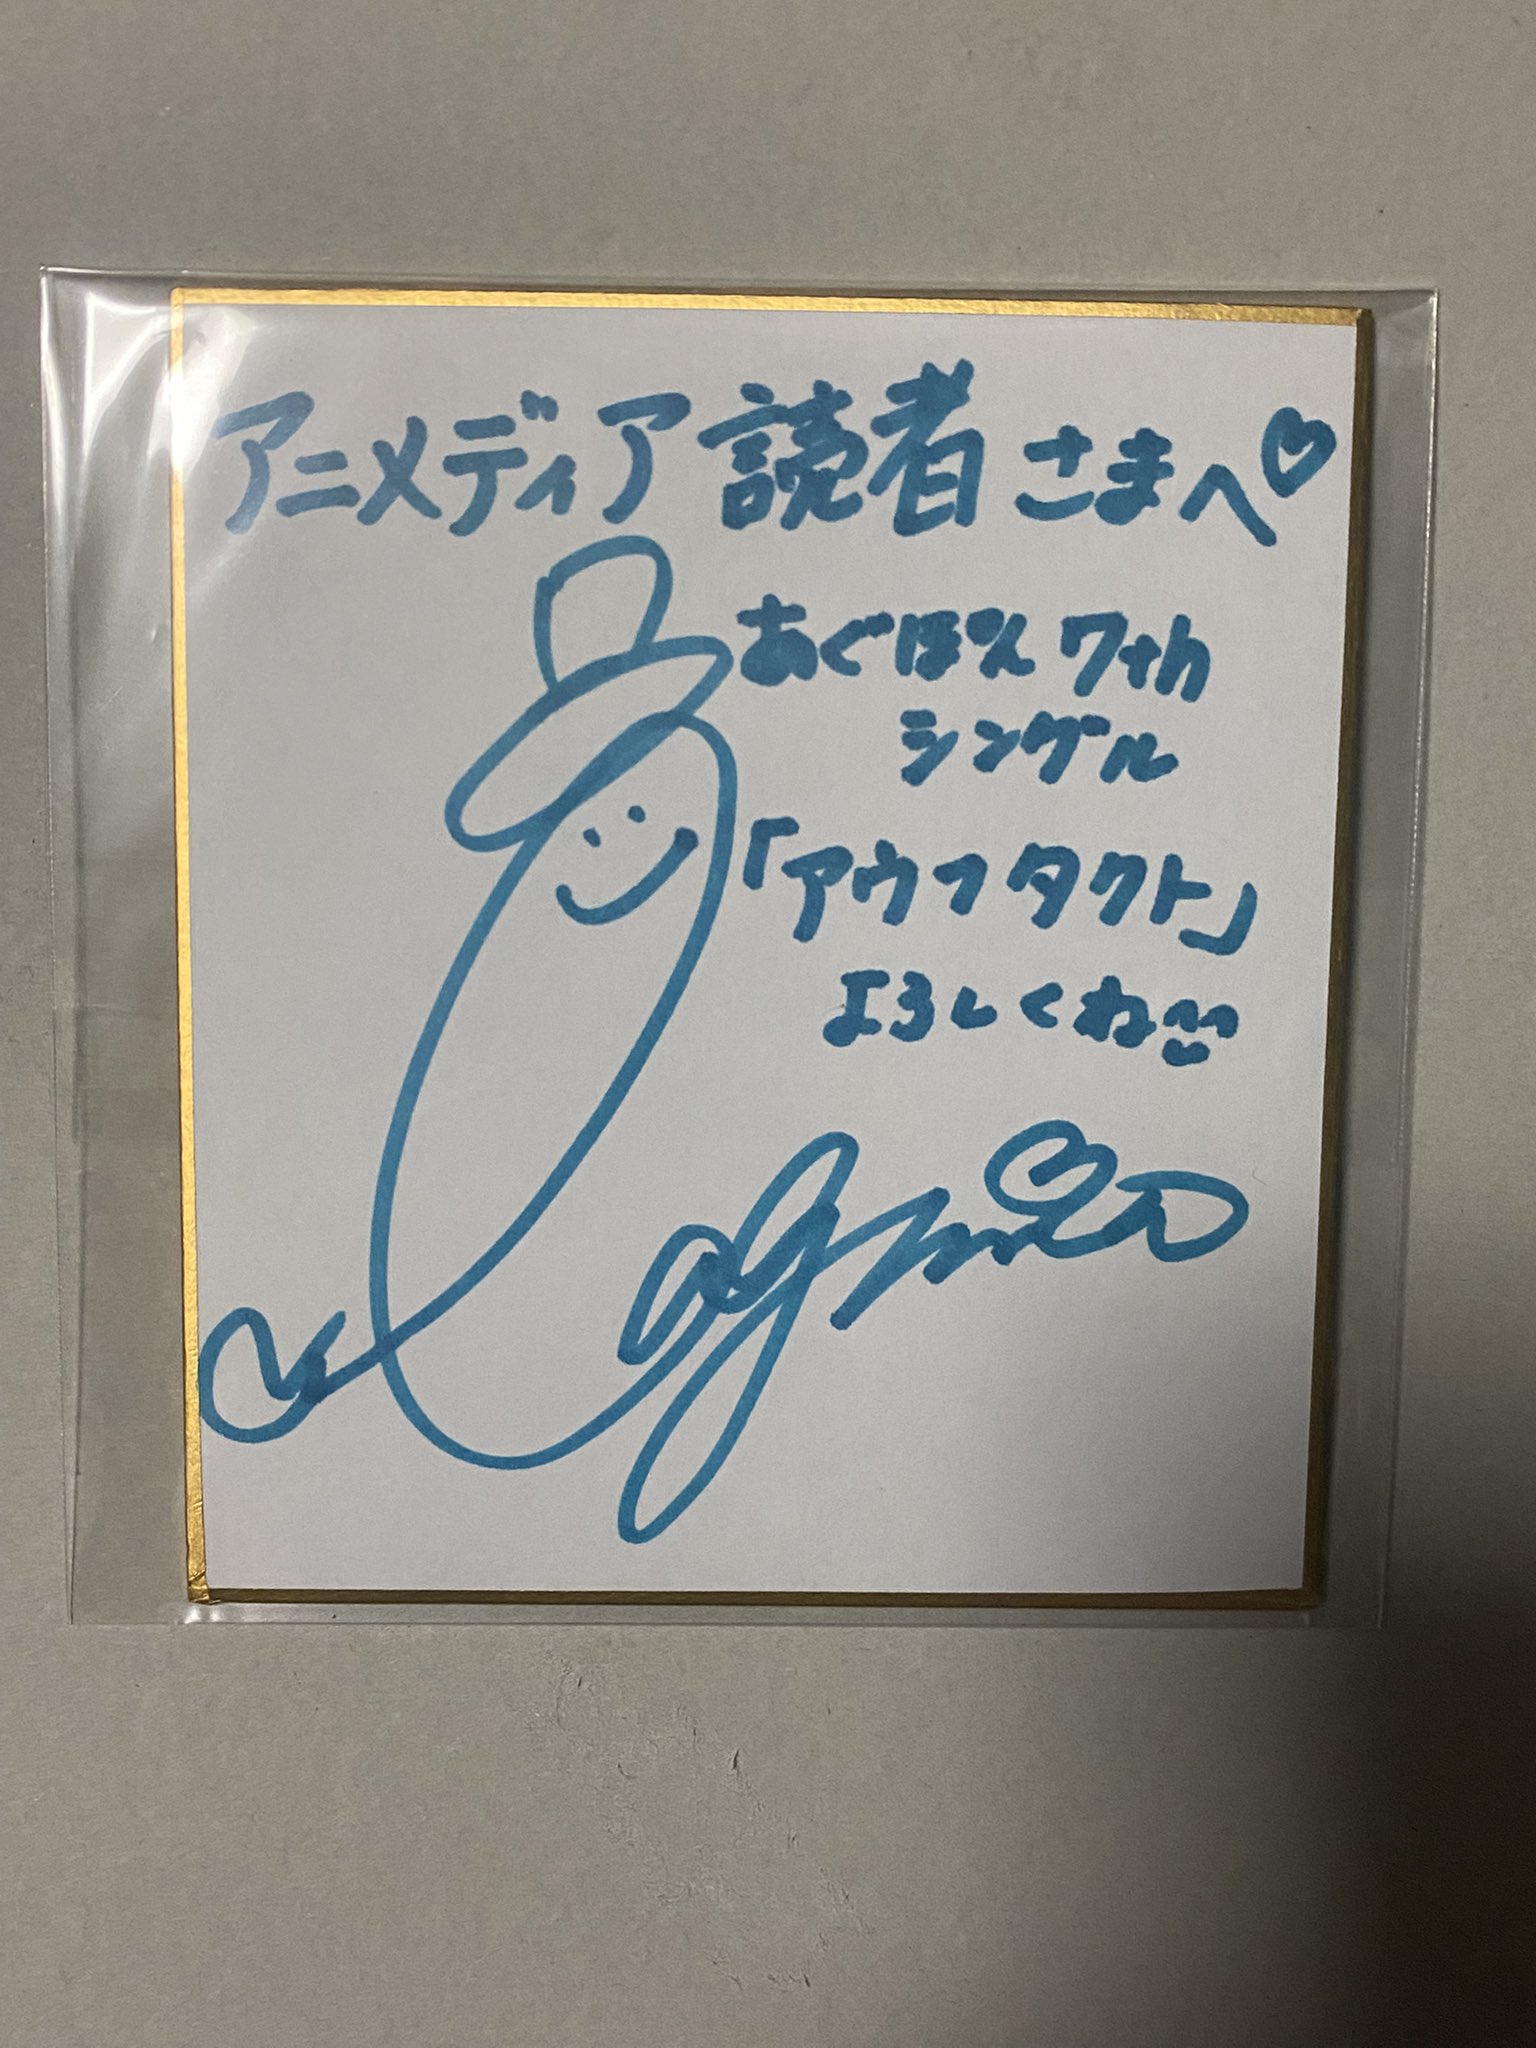 アニメディア読者さまへ♡
あぐぽん 7th
シングル
「アウフタクト」
よろしくね